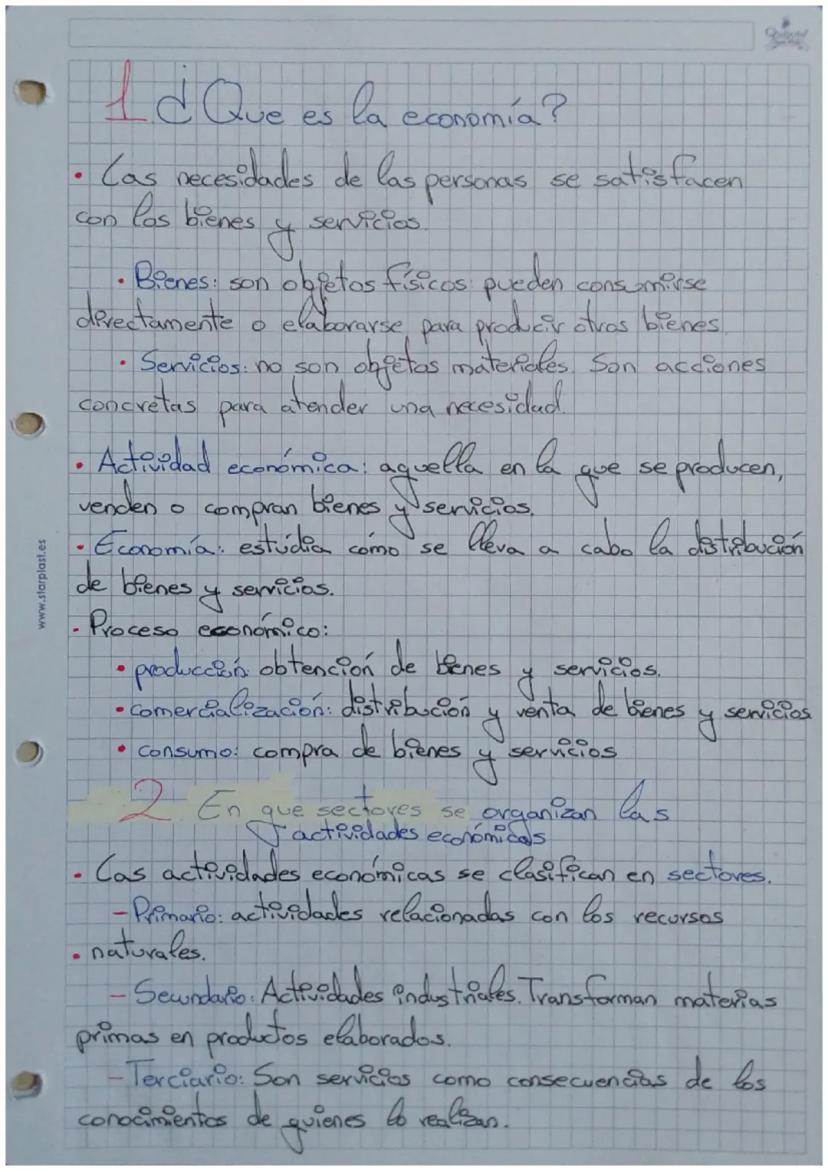 1. ¿Que es la economía?
• Las necesidades de las personas se satisfacen
con los bienes y servicios.
• Bienes: son objetos físicos: pueden consumirse
directamente o elaborarse para producir otros bienes.
• Servicios: no son objetos materiales. Son acciones
concretas para atender una necesidad.
• Actividad económica: aquella en la que se producen,
venden o compran bienes y servicios.
• Economía: estudia cómo se lleva a cabo la distribución
de bienes y servicios.
• Proceso económico:
• producción: obtención de bienes y servicios.
• comercialización: distribución y venta de bienes y servicios
• consumo: compra de bienes y servicios
2. En que sectores se organizan las
actividades económicas
• Las actividades económicas se clasifican en sectores.
- Primario: actividades relacionadas con los recursos
• naturales.
- Secundario: Actividades industriales. Transforman materias
primas en productos elaborados.
- Terciario: Son servicios como consecuencias de los
conocimientos de quienes lo realizan.
www.starplast.es